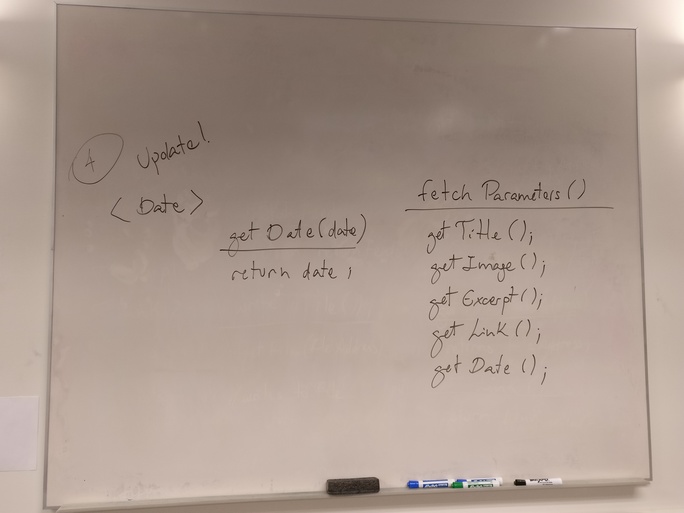 4 Update!
<Date>
get Date(date)
return date;
fetch Parameters()
get Title();
get Image();
get Excerpt();
get Link();
get Date();